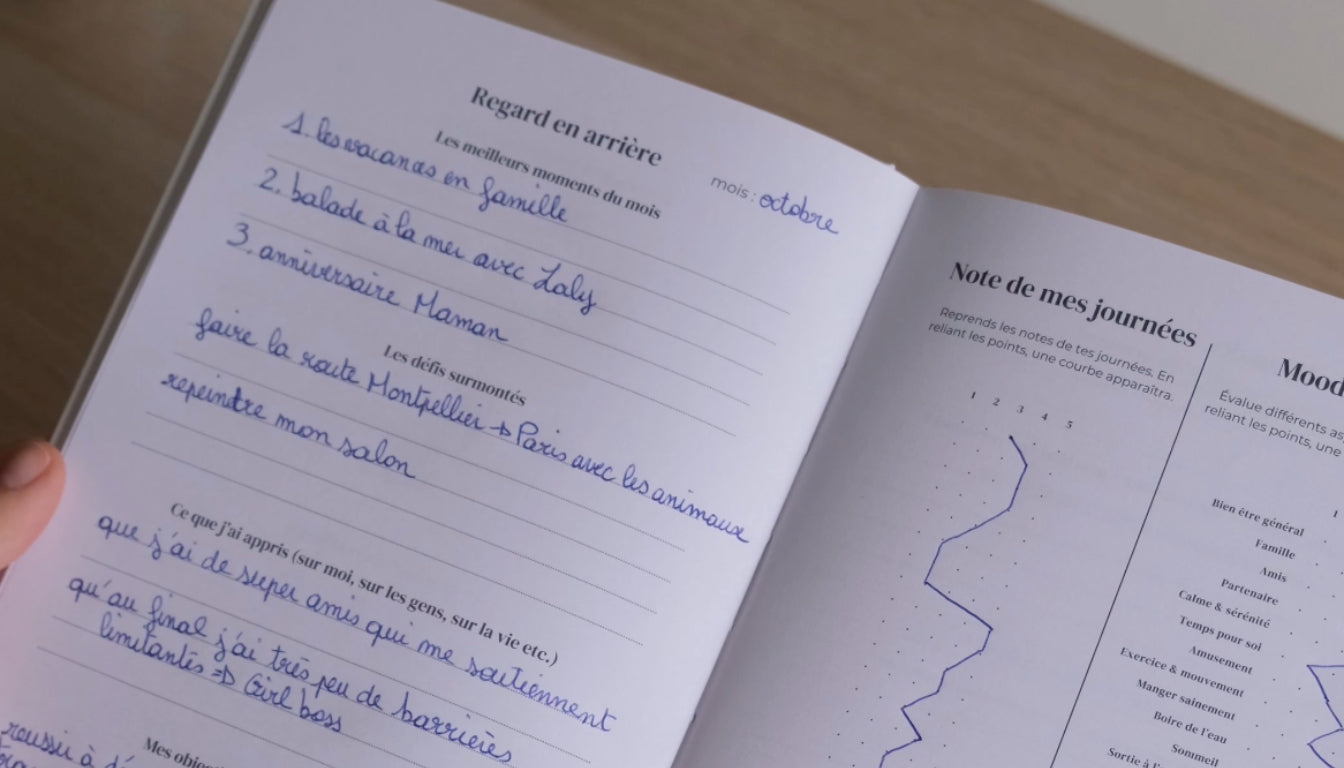 Regard en arrière
mois : octobre
Les meilleurs moments du mois
1. les vacances en famille
2. balade à la mer avec Laly
3. anniversaire Maman
Les défis surmontés
faire la route Montpellier → Paris avec les animaux
repeindre mon salon
Ce que j'ai appris (sur moi, sur les gens, sur la vie etc.)
que j'ai de super amis qui me soutiennent
qu'au final j'ai très peu de barrières
limitantes => Girl boss
Mes
réussir à
Note de mes journées
Reprends les notes de tes journées. En
reliant les points, une courbe apparaîtra.
1 2 3 4 5
Mood
Évalue différents
reliant les points, une
1
Bien être général
Famille
Amis
Partenaire
Calme & sérénité
Temps pour soi
Amusement
Exercice & mouvement
Manger sainement
Boire de l'eau
Sommeil
Sortie à